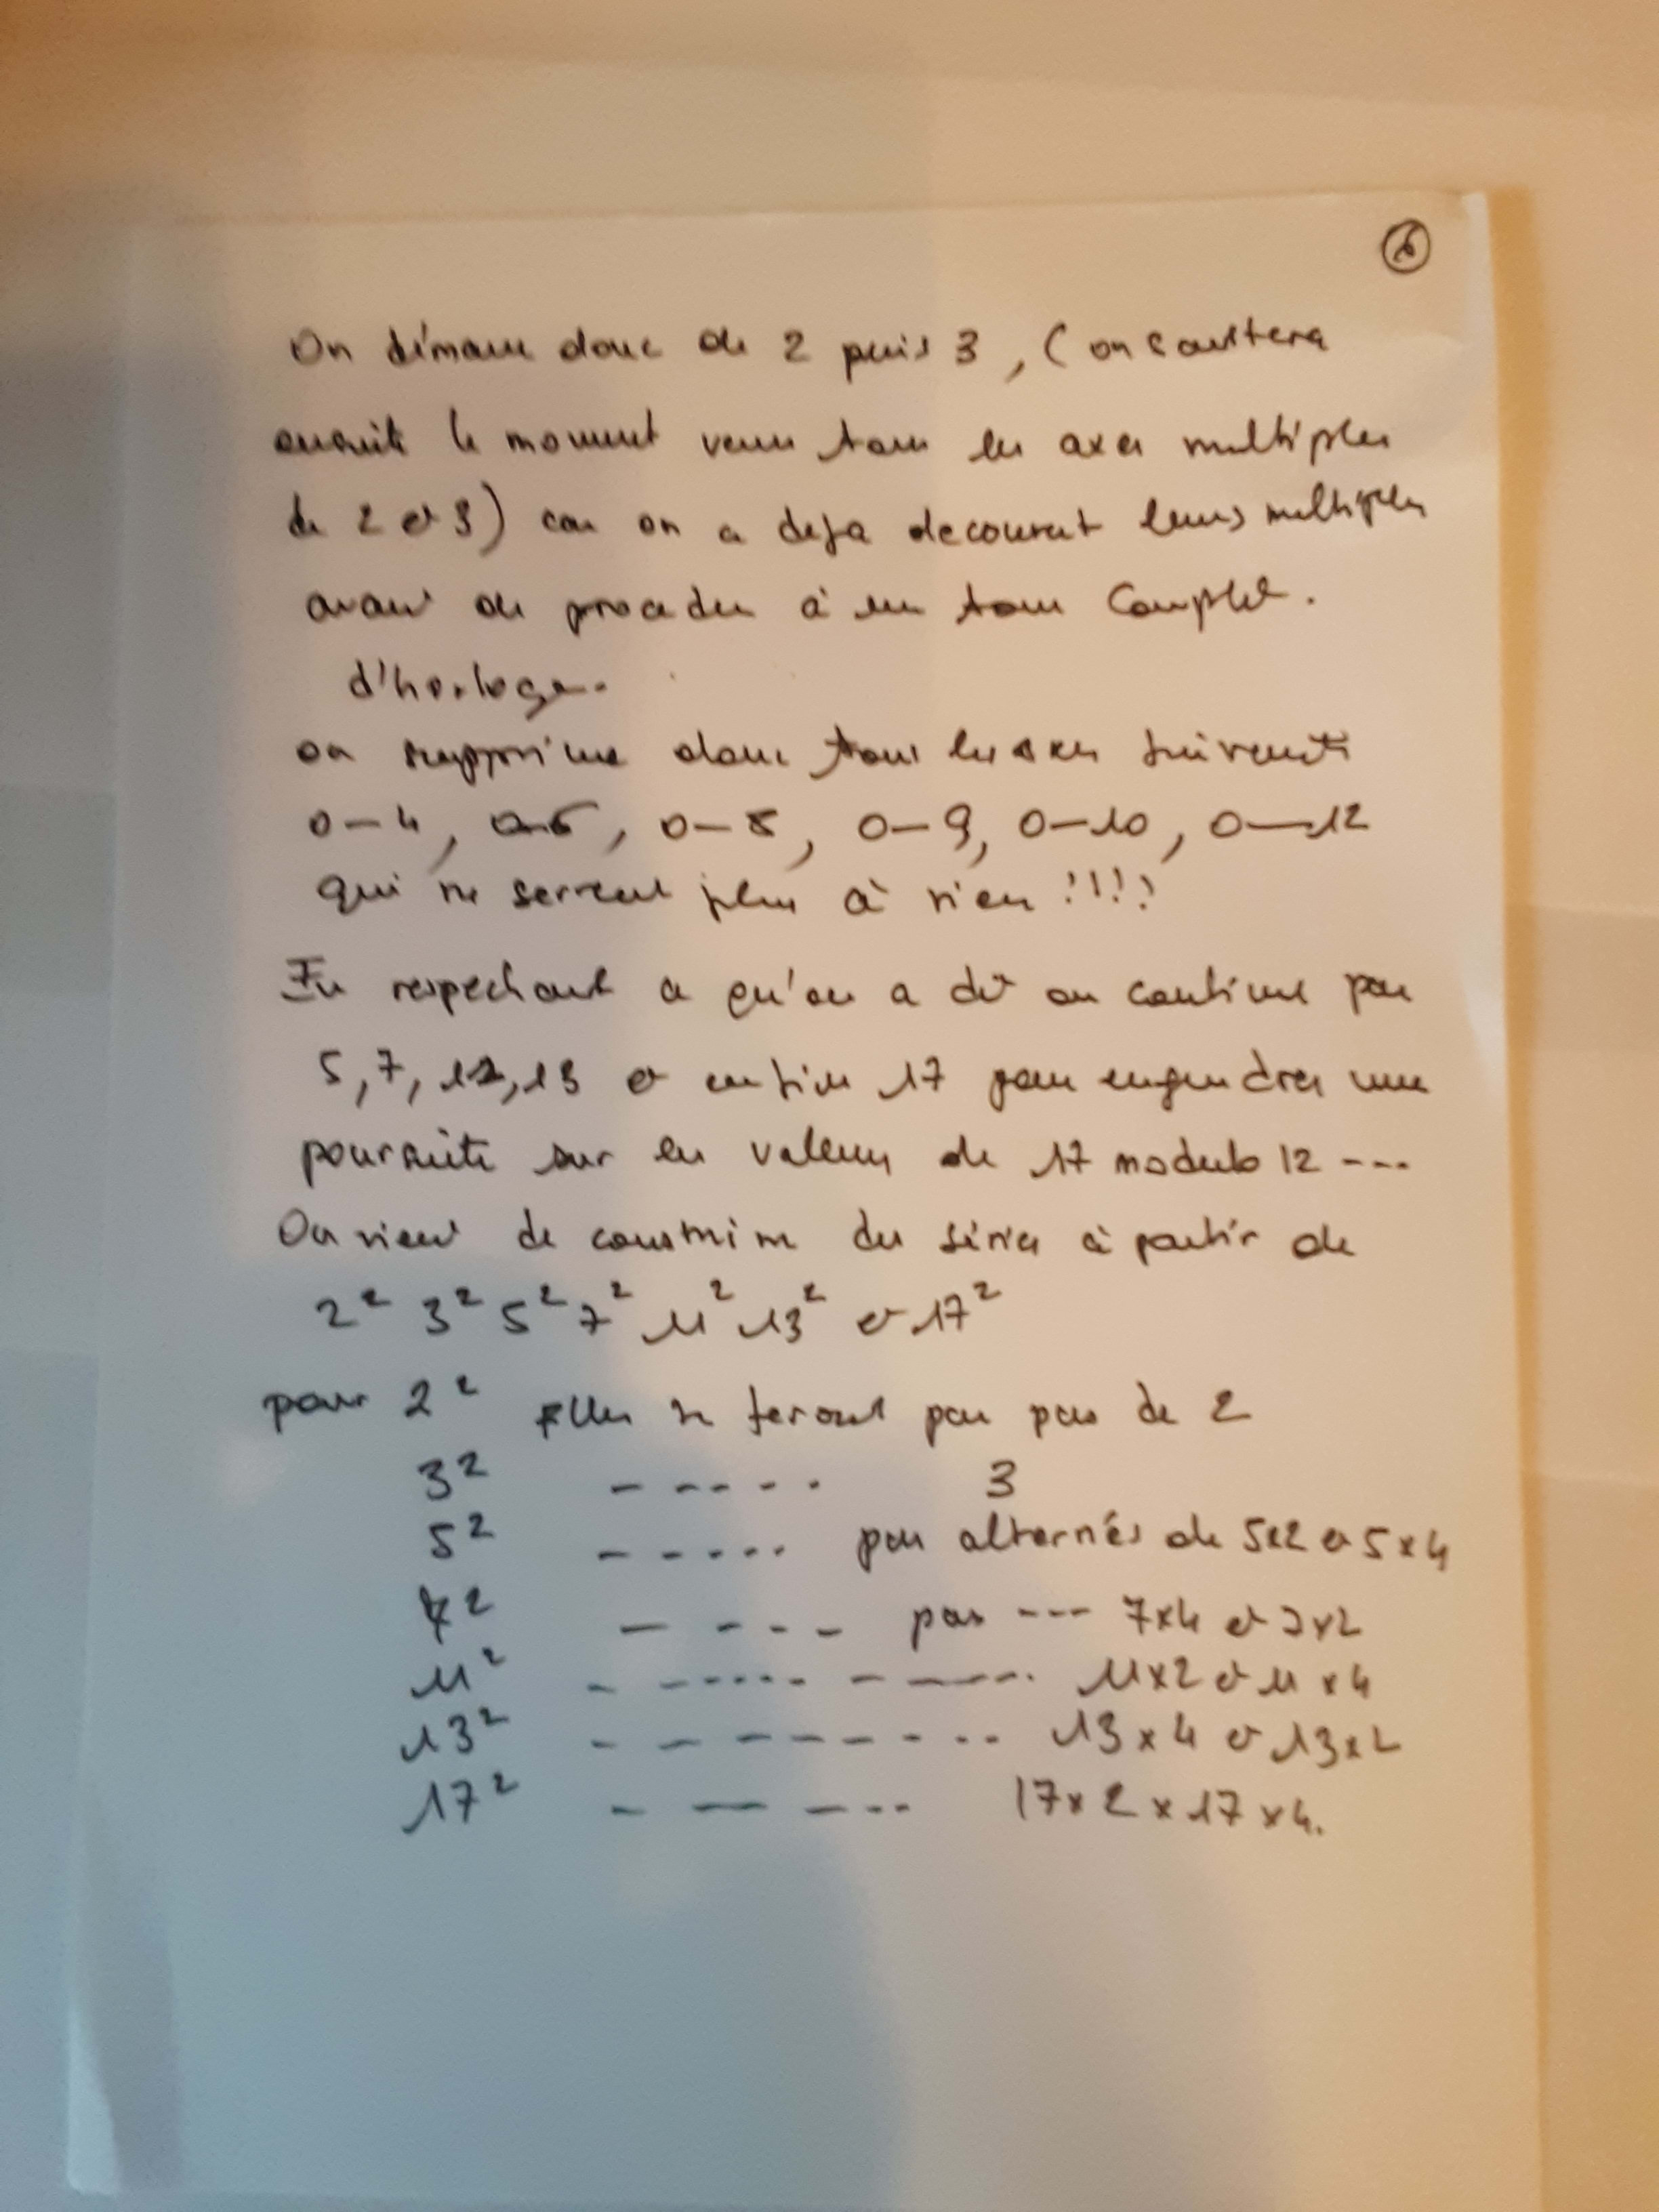 6
On démarre donc de 2 puis 3, (on sautera
ensuite le moment venu tous les axes multiples
de 2 et 3) car on a deja decouvert leurs multiples
avant de proceder à un tour complet.
d'horloge.
on supprime donc tous les axes suivants
0-4, 0-6, 0-8, 0-9, 0-10, 0-12
qui ne servent plus à rien !!!!
En respectant ce qu'on a dit on continue par
5,7,11,13 et enfin 17 pour engendrer une
poursuite sur les valeurs de 17 modulo 12 ---
On vient de construire des séries à partir de
2² 3² 5² 7² 11² 13² et 17²
pour 2² elles se feront par pas de 2
3² - - - - - 3
5² - - - - - par alternés de 5x2 et 5x4
7² - - - - pas --- 7x4 et 7x2
11² - - - - - - - - 11x2 et 11x4
13² - - - - - - - - - 13x4 et 13x2
17² - - - - - 17x2 x 17x4.